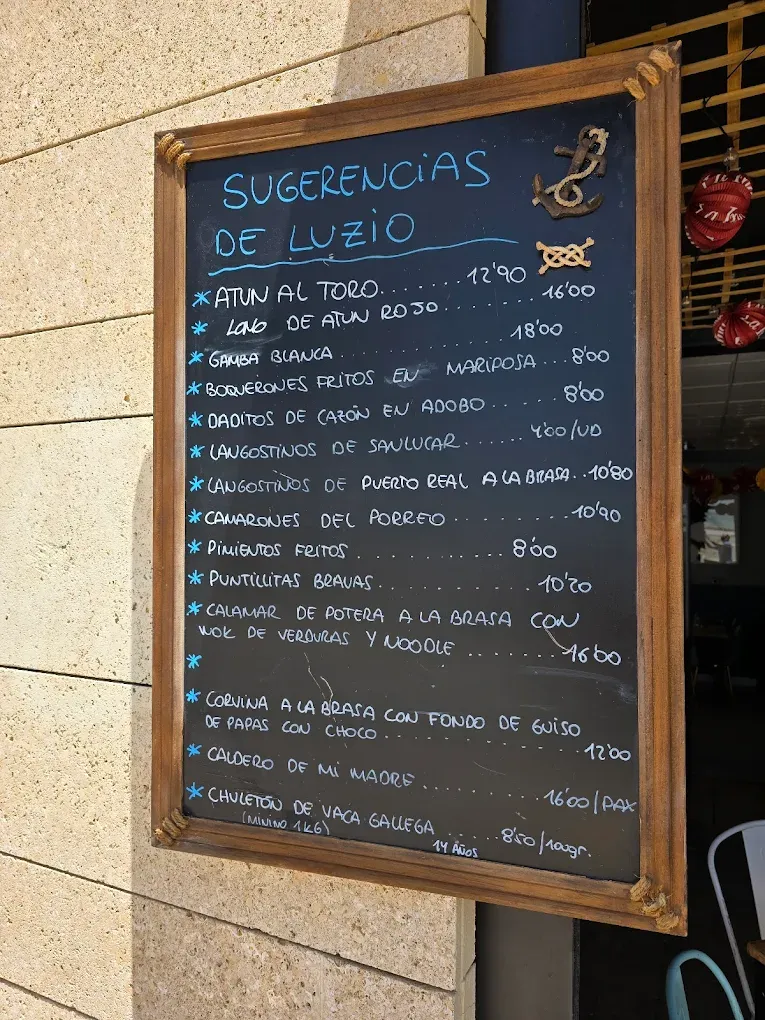 SUGERENCiAS
DE LUZiO
* ATUN AL TORO........12'90
* LOMO DE ATUN ROJO..........16'00
* GAMBA BLANCA..................18'00
* BOQUERONES FRITOS EN MARIPOSA...8'00
* DADITOS DE CAZÓN EN ADOBO........8'00
* LANGOSTINOS DE SANLUCAR.......4'00/UD
* LANGOSTINOS DE PUERTO REAL A LA BRASA..10'80
* CAMARONES DEL PORREO............10'90
* PIMIENTOS FRITOS...............8'00
* PUNTILLITAS BRAVAS................10'20
* CALAMAR DE POTERA A LA BRASA CON
WOK DE VERDURAS Y NOODLE..........16'00
*
* CORVINA A LA BRASA CON FONDO DE GUISO
DE PAPAS CON CHOCO....................12'00
* CALDERO DE MI MADRE............16'00/PAX
* CHULETÓN DE VACA GALLEGA......8'50/100gr.
(MINIMO 1KG) 14 AÑOS